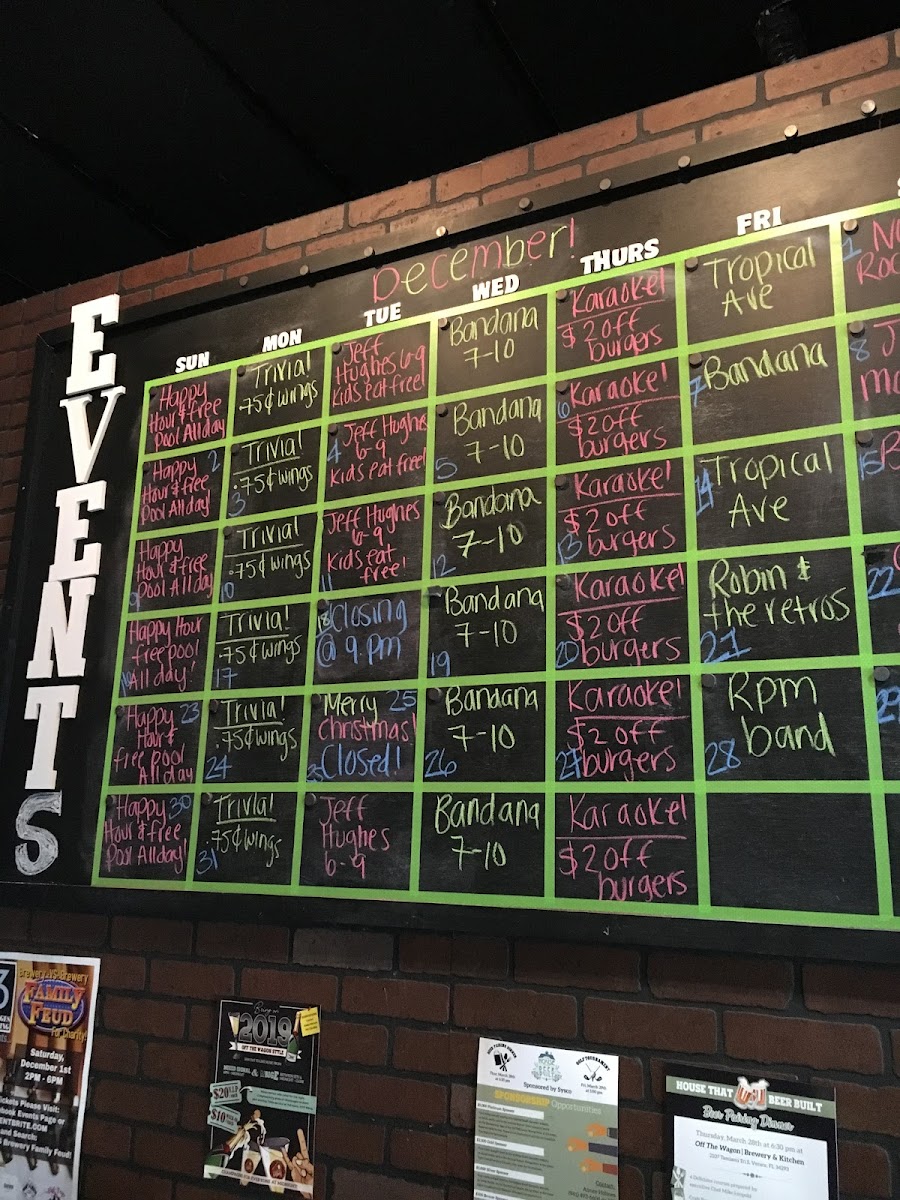 EVENTS
December!
SUN
MON
TUE
WED
THURS
FRI
Happy
Hour & free
Pool All day
Trivia!
.75¢ wings
Jeff
Hughes 6-9
Kids eat free!
Bandana
7-10
Karaoke!
$2 off
burgers
Tropical
Ave
1
Happy 2
Hour & free
Pool All day!
Trivia!
.75¢ wings
3
Jeff Hughes
4 6-9
Kids eat free!
Bandana
7-10
5
Karaoke!
6 $2 off
burgers
7 Bandana
8
Happy
Hour & free
Pool All day
9
Trivia!
.75¢ wings
10
Jeff Hughes
6-9
Kids eat
11 free!
Bandana
7-10
12
Karaoke!
$2 off
13 burgers
14 Tropical
Ave
15
Happy Hour
free pool
All day!
16
Trivia!
.75¢ wings
17
18 Closing
@ 9pm
Bandana
7-10
19
Karaoke!
$2 off
20 burgers
Robin &
the retros
21
22
Happy 23
Hour &
free pool
All day
Trivia!
.75¢ wings
24
Merry 25
Christmas!
Closed!
Bandana
7-10
26
Karaoke!
$2 off
27 burgers
Rpm
band
28
29
Happy 30
Hour & free
Pool All day!
Trivia!
.75¢ wings
31
Jeff
Hughes
6-9
Bandana
7-10
Karaoke!
$2 off
burgers
Brewery VS Brewery
FAMILY
FEUD
For Charity!
Saturday,
December 1st
2PM - 6PM
Brewery Family Feud!
2019
OFF THE WAGON STYLE
$20
$10
Sponsored by Sysco
SPONSORSHIP Opportunities
HOUSE THAT BEER BUILT
Beer Pairing Dinner
Thursday, March 28th at 6:30 pm at
Off The Wagon | Brewery & Kitchen